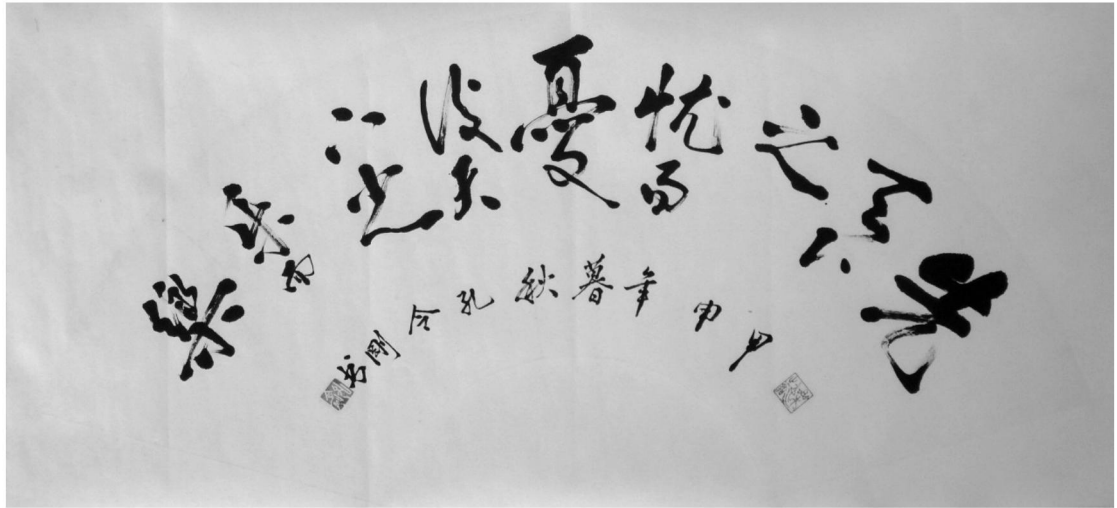 先天下之忧而憂後天下之乐而樂
甲申年暮秋孔令剛书